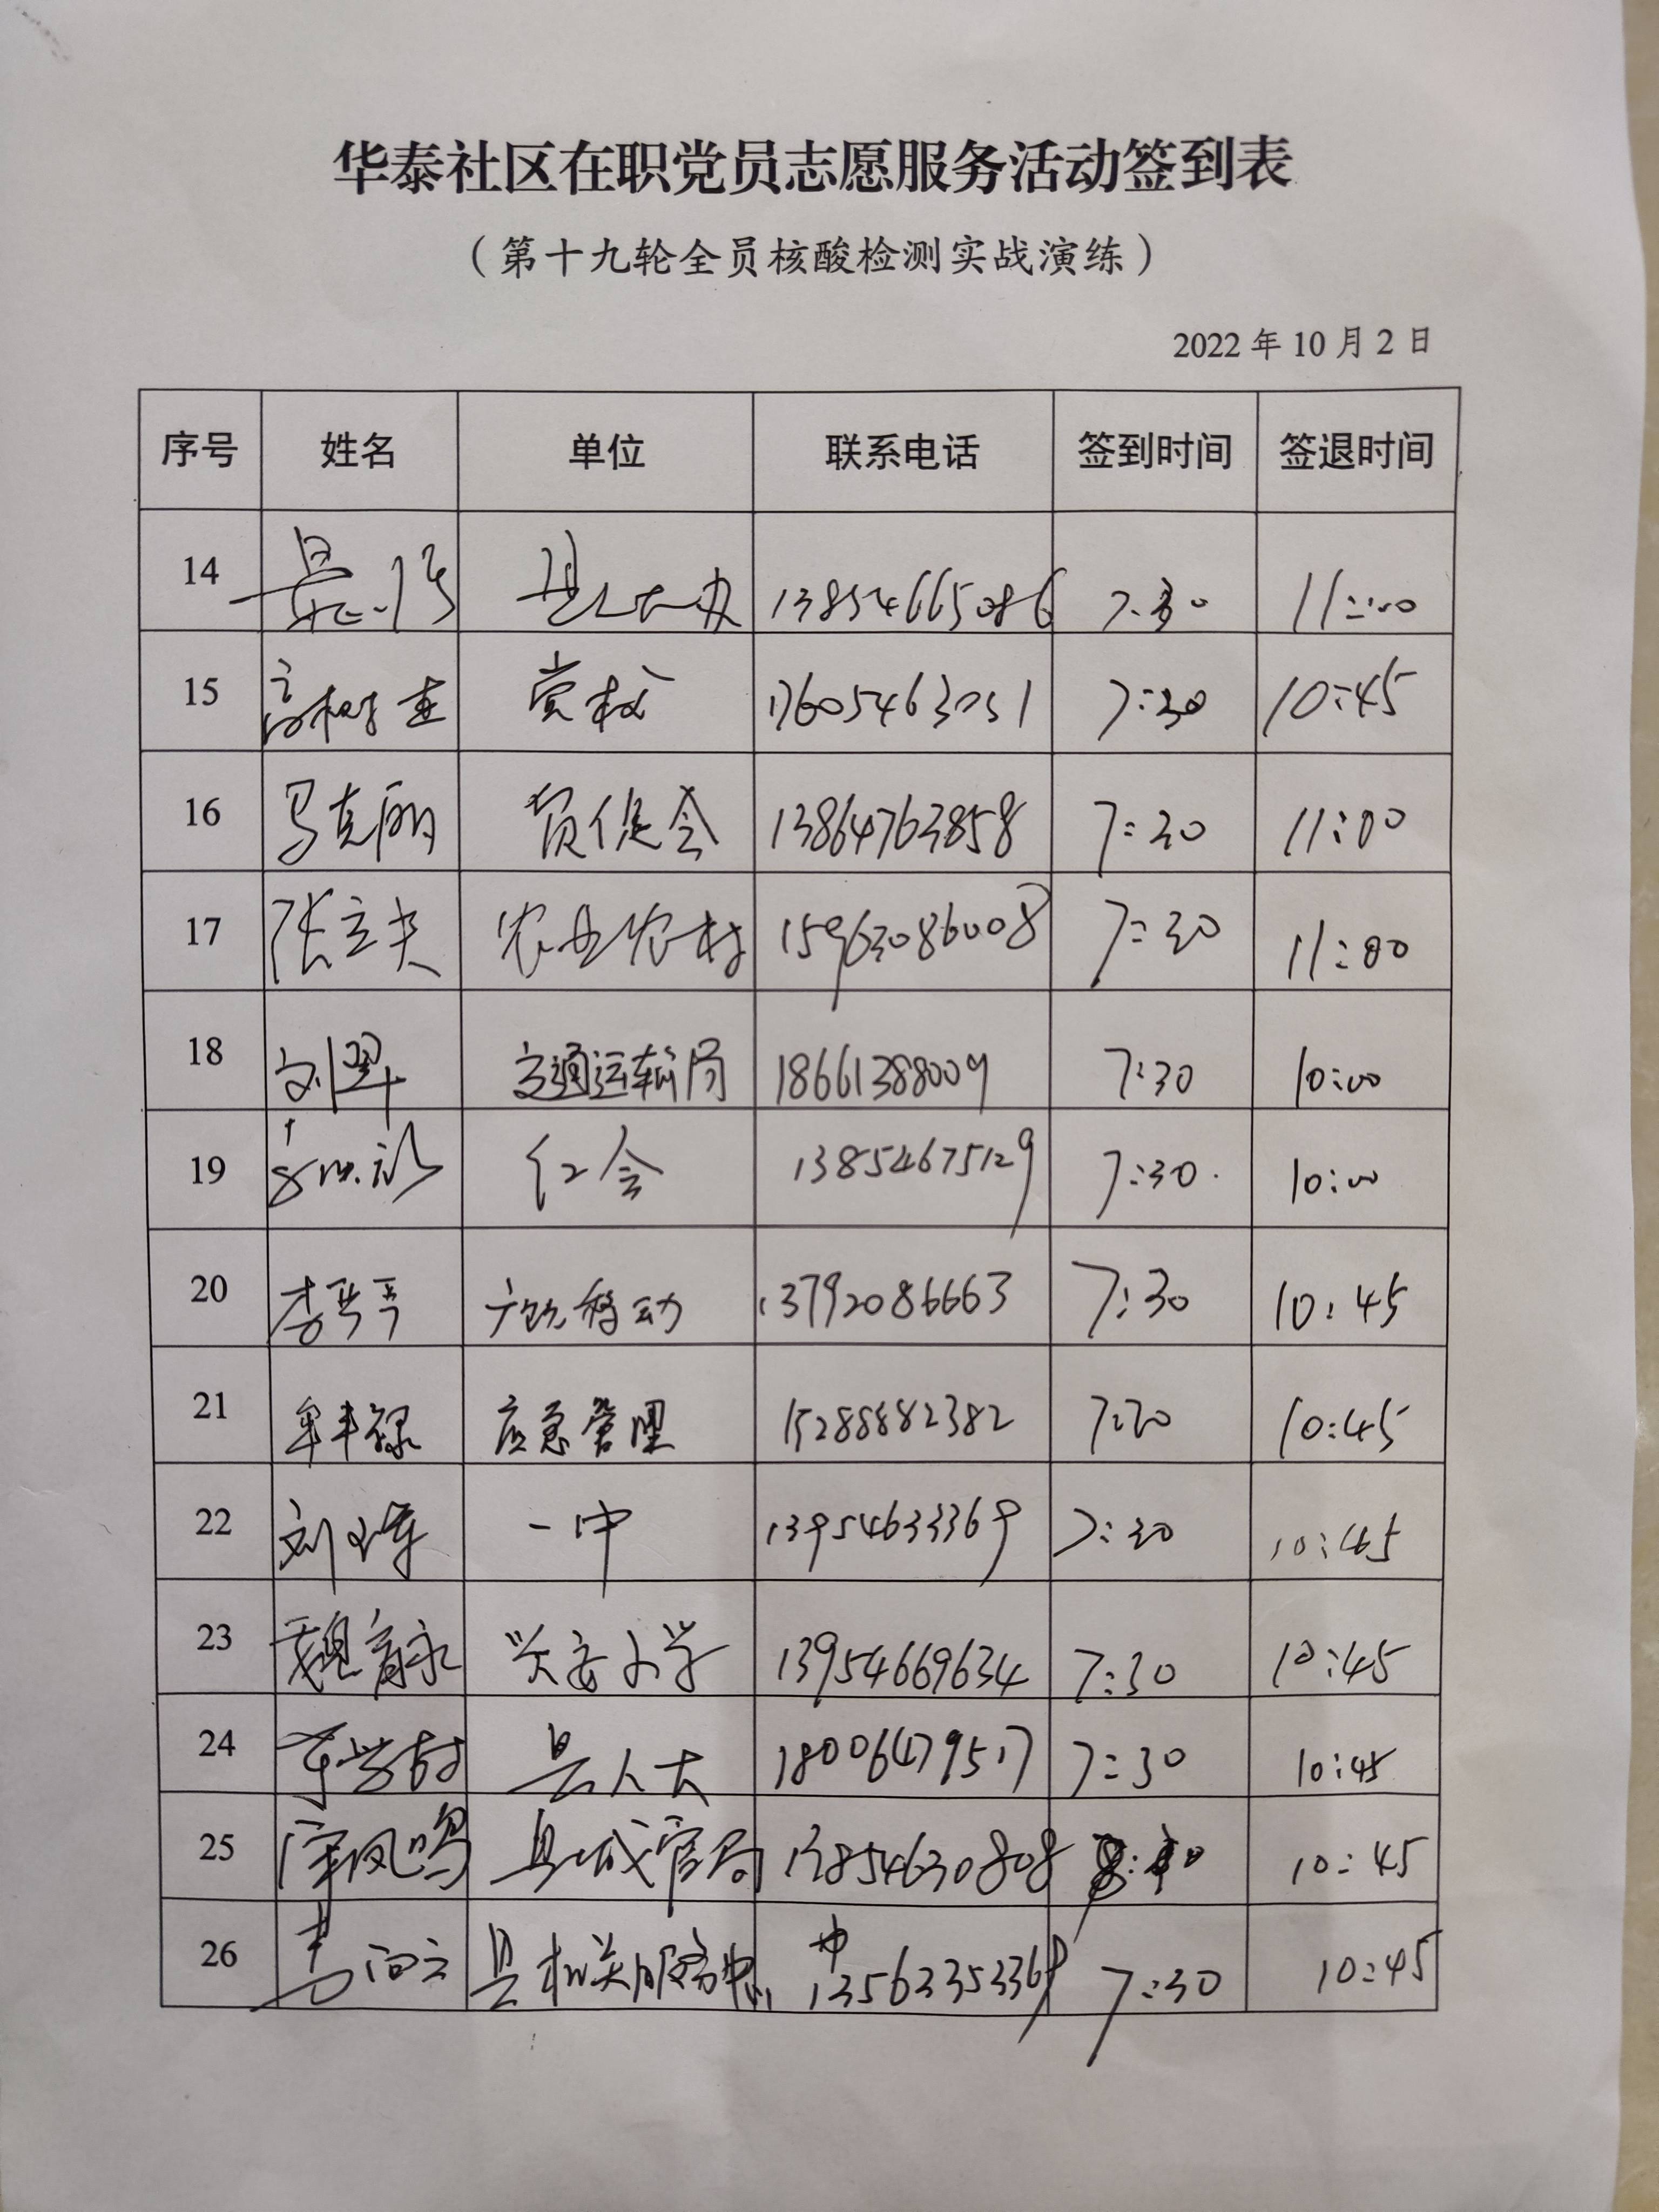 华泰社区在职党员志愿服务活动签到表
（第十九轮全员核酸检测实战演练）
2022年10月2日
序号 姓名 单位 联系电话 签到时间 签退时间
14 县人大办 13854665086 7:30 11:00
15 高树 党校 17605463051 7:30 10:45
16 马克丽 贸促会 13864763858 7:30 11:00
17 张立夫 农业农村 15963086008 7:30 11:00
18 刘翠 交通运输局 18661388009 7:30 10:00
19 仁会 13854675129 7:30 10:00
20 李 广饶移动 13792086663 7:30 10:45
21 牟丰禄 应急管理 15288882382 7:30 10:45
22 刘 一中 13954633369 7:30 10:45
23 魏育永 兴安小学 13954669634 7:30 10:45
24 县人大 18006479517 7:30 10:45
25 凤鸣 县城管局 13854630808 10:45
26 县机关服务中心 13562353369 7:30 10:45